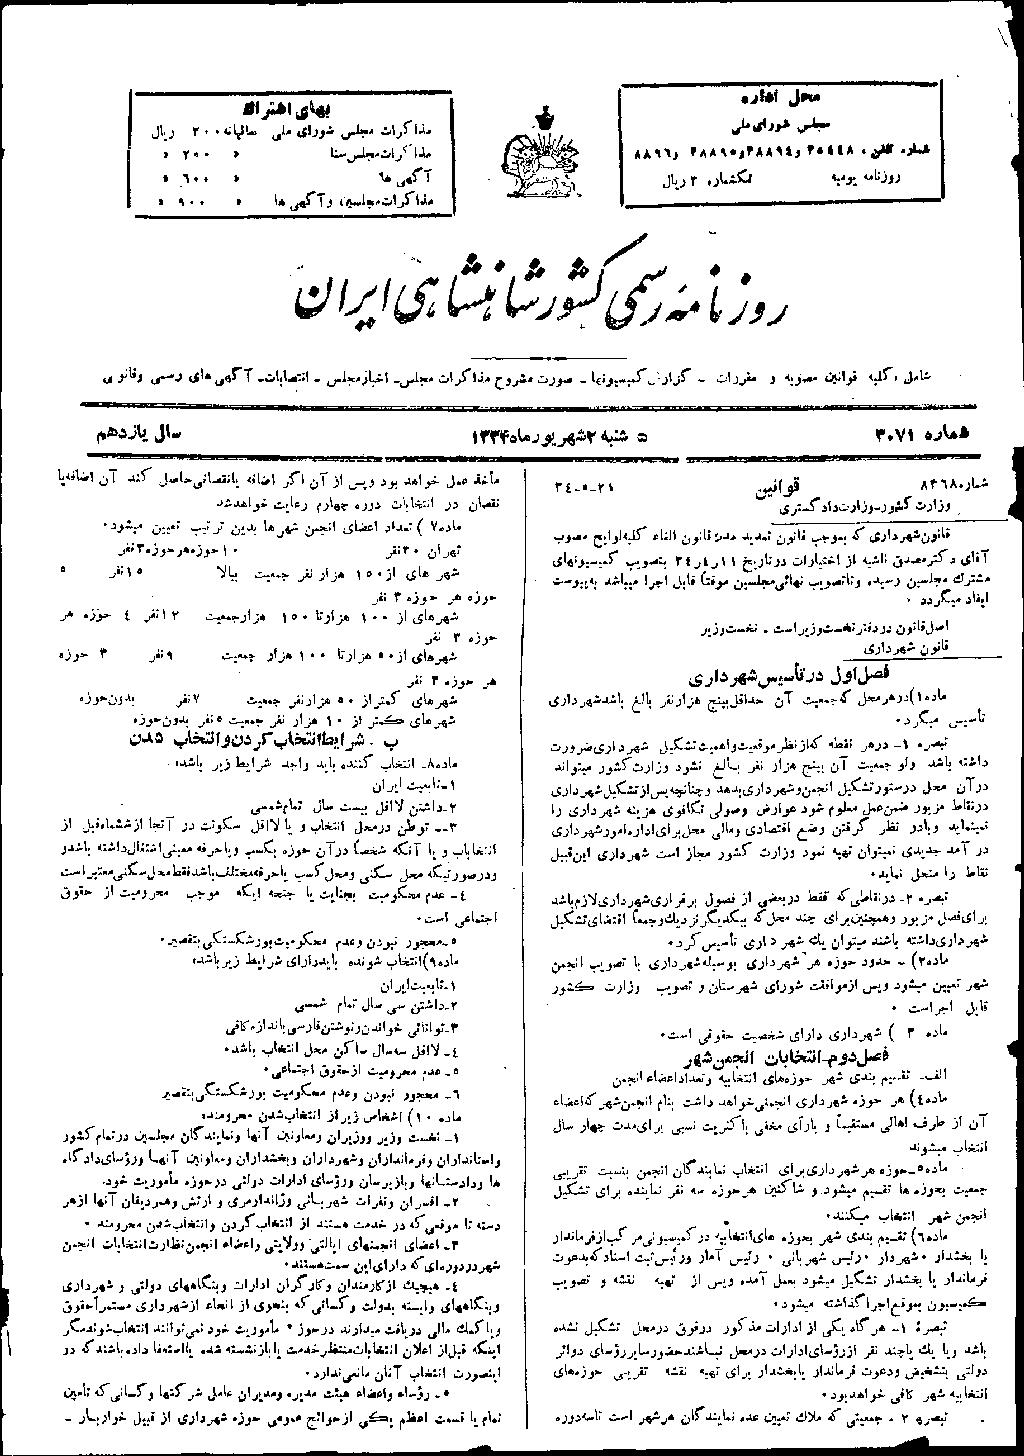 محل اداره
مجلس شورای ملی
شماره تلفن: ۲۵۴۴۸ و ۳۸۸۹۴ و ۳۸۸۹۵ و ۸۸۹۶
روزنامه یومیه تکشماره ۲ ریال
بهای اشتراك
مذاکرات مجلس شورای ملی سالیانه ۲۰۰ ریال
مذاکرات مجلس سنا » ۲۰۰ »
آگهی ها » ۶۰۰ »
مذاکرات مجلسین و آگهی ها » ۹۰۰ »
روزنامه رسمی کشور شاهنشاهی ایران
شامل: کلیه قوانین مصوبه و مقررات - گزارش کمیسیونها - صورت مشروح مذاکرات مجلس - اخبار مجلس - انتصابات - آگهی های رسمی و قانونی
شماره ۳۰۷۱ ۵ شنبه ۲ شهریور ماه ۱۳۳۴ سال یازدهم
شماره ۸۴۶۸ قوانین ۳۴-۵-۲۱
وزارت کشور - وزارت دادگستری
قانون شهرداری که بموجب قانون تمدید مدت قانون الغاء کلیه لوایح مصوب
آقای دکتر مصدق ناشیه از اختیارات در تاریخ ۱۱ر۴ر۳۴ بتصویب کمیسیونهای
مشترك مجلسین رسیده و تا تصویب نهائی مجلسین موقتاً قابل اجرا میباشد به پیوست
ایفاد میگردد .
اصل قانون در دفتر نخست وزیر است . نخست وزیر
قانون شهرداری
فصل اول در تأسیس شهرداری
ماده ۱) در هر محل که جمعیت آن حداقل پنج هزار نفر بالغ باشد شهرداری
تأسیس میگردد.
تبصره ۱- در هر نقطه که از نظر موقعیت و اهمیت تشکیل شهرداری ضرورت
داشته باشد ولو جمعیت آن پنج هزار نفر بالغ نشود وزارت کشور میتواند
در آن محل دستور تشکیل انجمن و شهرداری بدهد و چنانچه پس از تشکیل شهرداری
در نقاط مزبور ضمن عمل معلوم شود عوارض وصولی تکافوی هزینه شهرداری را
نمینماید و با در نظر گرفتن وضع اقتصادی و مالی محل برای اداره امور شهرداری
در آمد جدیدی نمیتوان تهیه نمود وزارت کشور مجاز است شهرداری این قبیل
نقاط را منحل نماید.
تبصره ۲- در نقاطی که فقط در بعضی از فصول برقراری شهرداری لازم باشد
برای فصل مزبور و همچنین برای چند محل که بیکدیگر نزدیك و جمعاً اقتضای تشکیل
شهرداری داشته باشند میتوان یك شهرداری تأسیس کرد.
ماده ۲) - حدود حوزه هر شهرداری بوسیله شهرداری با تصویب انجمن
شهر تعیین میشود و پس از موافقت شورای شهرستان و تصویب وزارت کشور
قابل اجراست .
ماده ۳ ) شهرداری دارای شخصیت حقوقی است.
فصل دوم - انتخابات انجمن شهر
الف- تقسیم بندی شهر حوزه های انتخابیه و تعداد اعضاء انجمن
ماده ۴) هر حوزه شهرداری انجمنی خواهد داشت بنام انجمن شهر که اعضاء
آن از طرف اهالی مستقیماً و بارأی مخفی باکثریت نسبی برای مدت چهار سال
انتخاب میشوند
ماده ۵- حوزه هر شهرداری برای انتخاب نمایندگان انجمن بنسبت تقریبی
جمعیت بحوزه ها تقسیم میشود و ساکنین هر حوزه سه نفر نماینده برای تشکیل
انجمن شهر انتخاب میکنند.
ماده ۶) تقسیم بندی شهر بحوزه های انتخابیه در کمیسیونی مرکب از فرماندار
یا بخشدار . شهردار . رئیس شهربانی . رئیس آمار و رئیس ثبت اسناد که بدعوت
فرماندار یا بخشدار تشکیل میشود بعمل آمده و پس از تهیه نقشه و تصویب
کمیسیون بموقع اجرا گذاشته میشود.
تبصرهٔ ۱- هر گاه یکی از ادارات مذکور در فوق در محل تشکیل نشده
باشد و یا یك یا چند نفر از رؤسای ادارات در محل نباشند حضور سایر رؤسای دوائر
دولتی بتشخیص و دعوت فرماندار یا بخشدار برای تهیه نقشه تقریبی حوزه های
انتخابیه شهر کافی خواهد بود.
تبصره ۲ - جمعیتی که ملاك تعیین عده نمایندگان هر شهر است تا سه دوره
مأخذ عمل خواهد بود و پس از آن اگر اضافه یا نقصانی حاصل کند آن اضافه یا
نقصان در انتخابات دوره چهارم رعایت خواهد شد
ماده ۷) تعداد اعضای انجمن شهر ها بدین ترتیب تعیین میشود.
تهران ۳۰ نفر ۱۰ حوزه هر حوزه ۳ نفر
شهر های از ۱۵۰ هزار نفر جمعیت ببالا ۱۵ نفر ۵
حوزه هر حوزه ۳ نفر
شهرهای از ۱۰۰ هزار تا ۱۵۰ هزار جمعیت ۱۲ نفر ۴ حوزه هر
حوزه ۳ نفر
شهرهای از ۵۰ هزار تا ۱۰۰ هزار جمعیت ۹ نفر ۳ حوزه
هر حوزه ۳ نفر
شهرهای کمتر از ۵۰ هزار نفر جمعیت ۷ نفر بدون حوزه
شهر های کمتر از ۱۰ هزار نفر جمعیت ۵ نفر بدون حوزه
ب - شرایط انتخاب کردن و انتخاب شدن
ماده ۸- انتخاب کننده باید واجد شرایط زیر باشد:
۱- تابعیت ایران
۲- داشتن لااقل بیست سال تمام شمسی
۳- توطن در محل انتخاب و یا لااقل سکونت در آنجا از ششماه قبل از
انتخاباب و یا آنکه شخصاً در آن حوزه بکسب و یا حرفه معینی اشتغال داشته باشد و
در صورتیکه محل سکنی و محل کسب یا حرفه مختلف باشد فقط محل سکنی معتبر است
۴- عدم محکومیت بجنایت یا جنحه ایکه موجب محرومیت از حقوق
اجتماعی است.
۵- محجور نبودن و عدم محکومیت بورشکستگی بتقصیر.
ماده ۹) انتخاب شونده باید دارای شرایط زیر باشد:
۱- تابعیت ایران
۲- داشتن سی سال تمام شمسی
۳- توانائی خواندن و نوشتن فارسی باندازه کافی
۴- لااقل سه سال ساکن محل انتخاب باشد.
۵- عدم محرومیت از حقوق اجتماعی.
۶- محجور نبودن وعدم محکومیت بورشکستگی بتقصیر
ماده ۱۰) اشخاص زیر از انتخاب شدن محرومند:
۱- نخست وزیر و وزیران و معاونین آنها و نمایندگان مجلسین در تمام کشور
و استانداران و فرمانداران و شهرداران و بخشداران و معاونین آنها و رؤسای دادگاه
ها و دادستانها و بازپرسان و رؤسای ادارات دولتی در حوزه مأموریت خود.
۲- افسران و نفرات شهربانی و ژاندارمری و ارتش و همردیفان آنها از هر
دسته تا موقعی که در خدمت هستند از انتخاب کردن و انتخاب شدن محرومند .
۳- اعضای انجمنهای ایالتی و ولایتی و اعضاء انجمن نظارت انتخابات انجمن
شهر در دوره ای که دارای این سمت هستند.
۴- هیچیك از کارمندان و کارگران ادارات و بنگاههای دولتی و شهرداری
و بنگاههای وابسته بدولت و کسانی که بنحوی از انحاء از شهرداری مستمراً حقوق
و یا کمك مالی دریافت میدارند در حوزه مأموریت خود نمی توانند انتخاب شوند مگر
اینکه قبل از اعلان انتخابات منتظر خدمت یا بازنشسته شده یا استعفا داده باشند که در
اینصورت انتخاب آنان مانعی ندارد.
۵- رؤساء و اعضاء هیئت مدیره و مدیران عامل شرکتها و کسانی که تأمین
تمام یا قسمت اعظم یکی از حوائج عمومی حوزه شهرداری از قبیل خواربار -